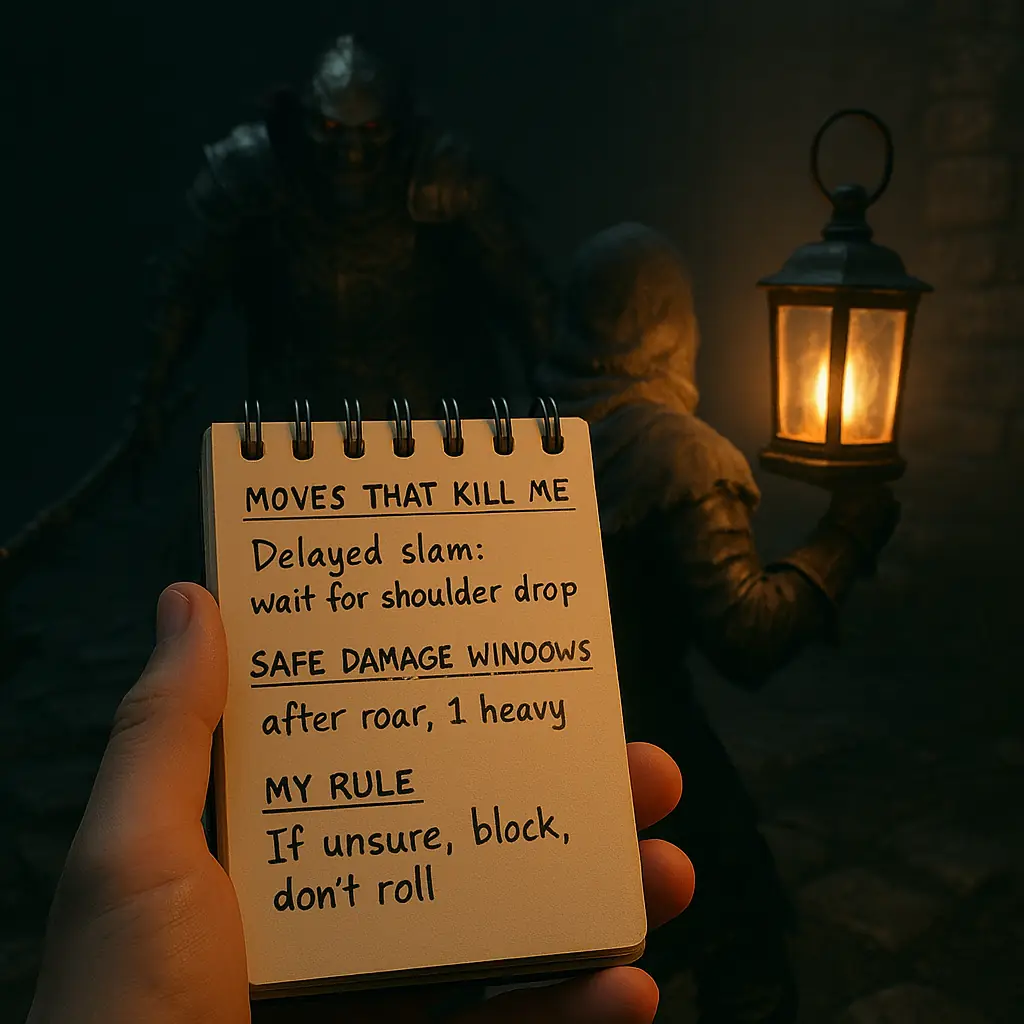 MOVES THAT KILL ME
Delayed slam:
wait for shoulder drop
SAFE DAMAGE WINOOWS
after roar, 1 heavy
MY RULE
If unsure, block,
don't roll